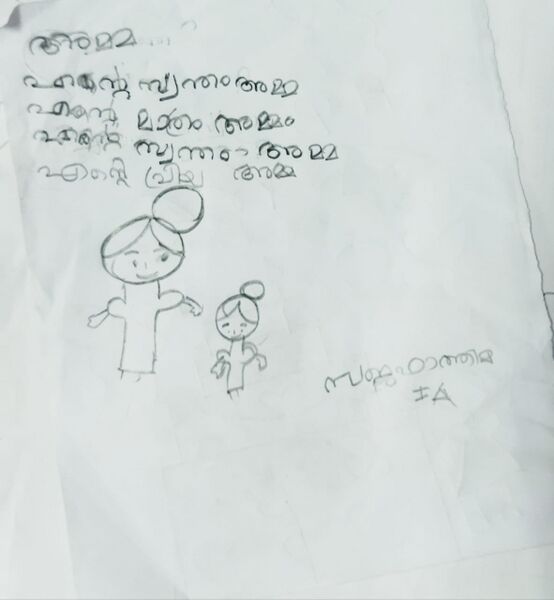 അമ്മ
എന്റെ സ്വന്തം അമ്മ
എന്റെ മാത്രം അമ്മ
എന്റെ സ്വന്തം അമ്മ
എന്റെ പ്രിയ അമ്മ
I A